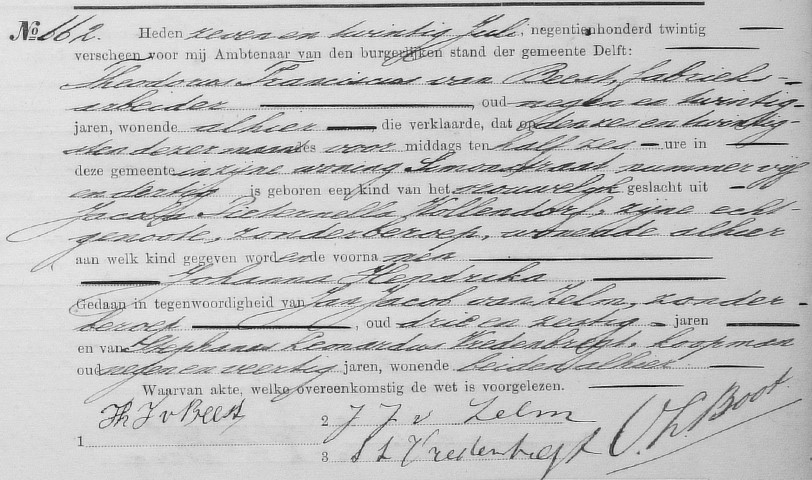 No. 662. Heden zeven en twintig Juli, negentienhonderd twintig
verscheen voor mij Ambtenaar van den burgerlijken stand der gemeente Delft:
Theodorus Franciscus van Beest, fabrieks-
arbeider, oud negen en twintig
jaren, wonende alhier die verklaarde, dat op den zes en twintig-
sten dezer maand des voor middags ten half zes ure in
deze gemeente in zijne woning Simonstraat nummer vijf
en dertig is geboren een kind van het vrouwelijk geslacht uit
Jacoba Pieternella Wollendorf, zijne echt-
genoote, zonder beroep, wonende alhier
aan welk kind gegeven worden de voornamen
Johanna Hendrika
Gedaan in tegenwoordigheid van Jan Jacob van Zelm, zonder
beroep, oud drie en zestig jaren
en van Stephanus Leonardus Vredenbregt, koopman
oud negen en veertig jaren, wonende beiden alhier
Waarvan akte, welke overeenkomstig de wet is voorgelezen.
1 Th F v Beest
2 J J v Zelm
3 S L Vredenbregt
Boot.